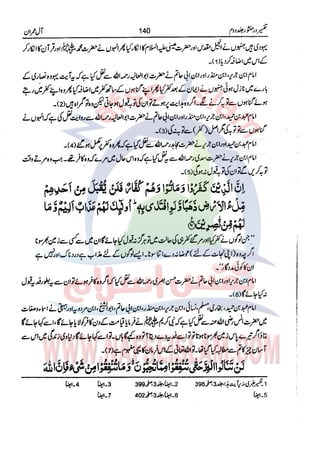 تفسیر درمنثور جلد دوم 140 آل عمران
یہودی ہیں جنہوں نے انجیل مقدس اور حضرت عیسیٰ علیہ السلام کا انکار کیا پھر انہوں نے حضرت محمد ﷺ اور قرآن کا انکار کر
کے اس میں اضافہ کر دیا (1)۔
امام ابن جریر، ابن منذر اور ابن ابی حاتم نے حضرت ابو العالیہ رحمہ اللہ سے نقل کیا ہے کہ یہ آیت یہود و نصاریٰ کے
بارے میں نازل ہوئی جنہوں نے ایمان کے بعد کفر کیا پھر اپنے گناہوں کے ساتھ کفر میں اضافہ کیا پھر وہ اپنے کفر میں رہتے
ہوئے گناہوں سے توبہ کرنے لگے۔ اگر وہ ہدایت پر ہوتے تو ان کی توبہ قبول ہو جاتی لیکن وہ تو گمراہ ہیں (2)۔
امام عبد بن حمید، ابن جریر، ابن منذر اور ابن ابی حاتم نے حضرت ابو العالیہ رحمہ اللہ سے روایت نقل کی ہے کہ انہوں نے
گناہوں سے توبہ کی مگر اصل (کفر) سے توبہ نہ کی (3)۔
امام عبد بن حمید اور ابن جریر نے حضرت مجاہد رحمہ اللہ سے نقل کیا ہے کہ پھر وہ کفر پر مکمل ہو گئے (4)۔
امام ابن جریر نے حضرت سدی رحمہ اللہ سے نقل کیا ہے کہ وہ اس حال میں مرے کہ وہ کافر تھے۔ جب وہ مرتے وقت
توبہ کریں گے تو ان کی توبہ قبول نہ ہوگی (5)۔
اِنَّ الَّذِیْنَ كَفَرُوْا وَ مَاتُوْا وَ هُمْ كُفَّارٌ فَلَنْ یُّقْبَلَ مِنْ اَحَدِهِمْ
مِّلْءُ الْاَرْضِ ذَهَبًا وَّ لَوِ افْتَدٰى بِهٖ ؕ اُولٰٓىِٕكَ لَهُمْ عَذَابٌ اَلِیْمٌ وَّ مَا
لَهُمْ مِّنْ نّٰصِرِیْنَ ۠
”جن لوگوں نے کفر اختیار کیا اور مر گئے کفر ہی کی حالت میں تو ہرگز نہ قبول کیا جائے گا ان میں سے کسی سے زمین بھر سونا
اگرچہ وہ (اپنی نجات کے لئے) عوضانہ دے اتنا سونا۔ ایسے لوگوں کے لئے عذاب ہے دردناک اور نہیں ہے
ان کا کوئی مددگار“۔
امام ابن جریر اور ابن ابی حاتم نے حضرت حسن بصری رحمہ اللہ سے نقل کیا ہے کہ اگر وہ کافر ہوئے تو ان سے یہ بطور فدیہ قبول
نہ کیا جائے گا (6)۔
امام عبد بن حمید، بخاری، مسلم، نسائی، ابن جریر، ابن منذر، ابن ابی حاتم، ابو الشیخ، ابن مردویہ اور بیہقی نے اسماء و صفات
میں حضرت انس رضی اللہ عنہ سے نقل کیا ہے کہ نبی کریم ﷺ نے فرمایا قیامت کے دن کافر کو لایا جائے گا، اسے کہا جائے گا
بتا اگر تیرے پاس زمین بھر سونا ہوتا تو تو اسے فدیہ دے دیتا؟ تو وہ کہے گا ہاں۔ تو اسے کہا جائے گا تجھ سے دنیا میں اس سے
آسان چیز کا مطالبہ کیا گیا تھا۔ تو اللہ تعالیٰ کے اس فرمان کا یہی مفہوم ہے (7)۔
لَنْ تَنَالُوا الْبِرَّ حَتّٰى تُنْفِقُوْا مِمَّا تُحِبُّوْنَ ؕ۬ وَ مَا تُنْفِقُوْا مِنْ شَیْءٍ فَاِنَّ اللّٰهَ
1۔ تفسیر طبری، زیر آیت ہذا، جلد 3، صفحہ 398 2۔ ایضاً، جلد 3، صفحہ 399 3۔ ایضاً 4۔ ایضاً
5۔ ایضاً 6۔ ایضاً، جلد 3، صفحہ 402 7۔ ایضاً